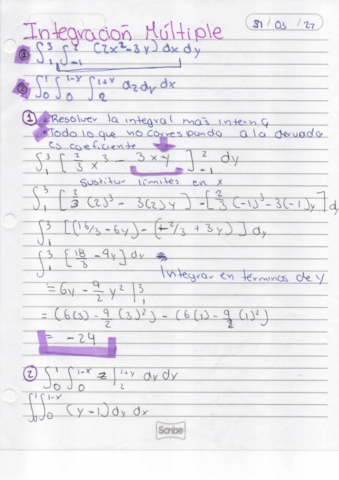 Integración Múltiple
31 / 03 / 27
① ∫₁³ ∫₋₁² (2x² - 3y) dx dy
② ∫₀¹ ∫₀^{1-x} ∫₂^{1+y} dz dy dx
① • Resolver la integral mas interna
• Todo lo que no corresponda a la derivada
es coeficiente
∫₁³ [ 2/3 x³ - 3xy ]₋₁² dy
Sustituir límites en x
∫₁³ [ 2/3 (2)³ - 3(2)y ] - [ 2/3 (-1)³ - 3(-1)y ] dy
∫₁³ [(16/3 - 6y) - (-2/3 + 3y)] dy
∫₁³ [ 18/3 - 9y ] dy
Integrar en terminos de y
= 6y - 9/2 y² |₁³
= (6(3) - 9/2 (3)²) - (6(1) - 9/2 (1)²)
= -24
② ∫₀¹ ∫₀^{1-x} z |₂^{1+y} dy dx
∫₀¹ ∫₀^{1-x} (y - 1) dy dx
Scribe